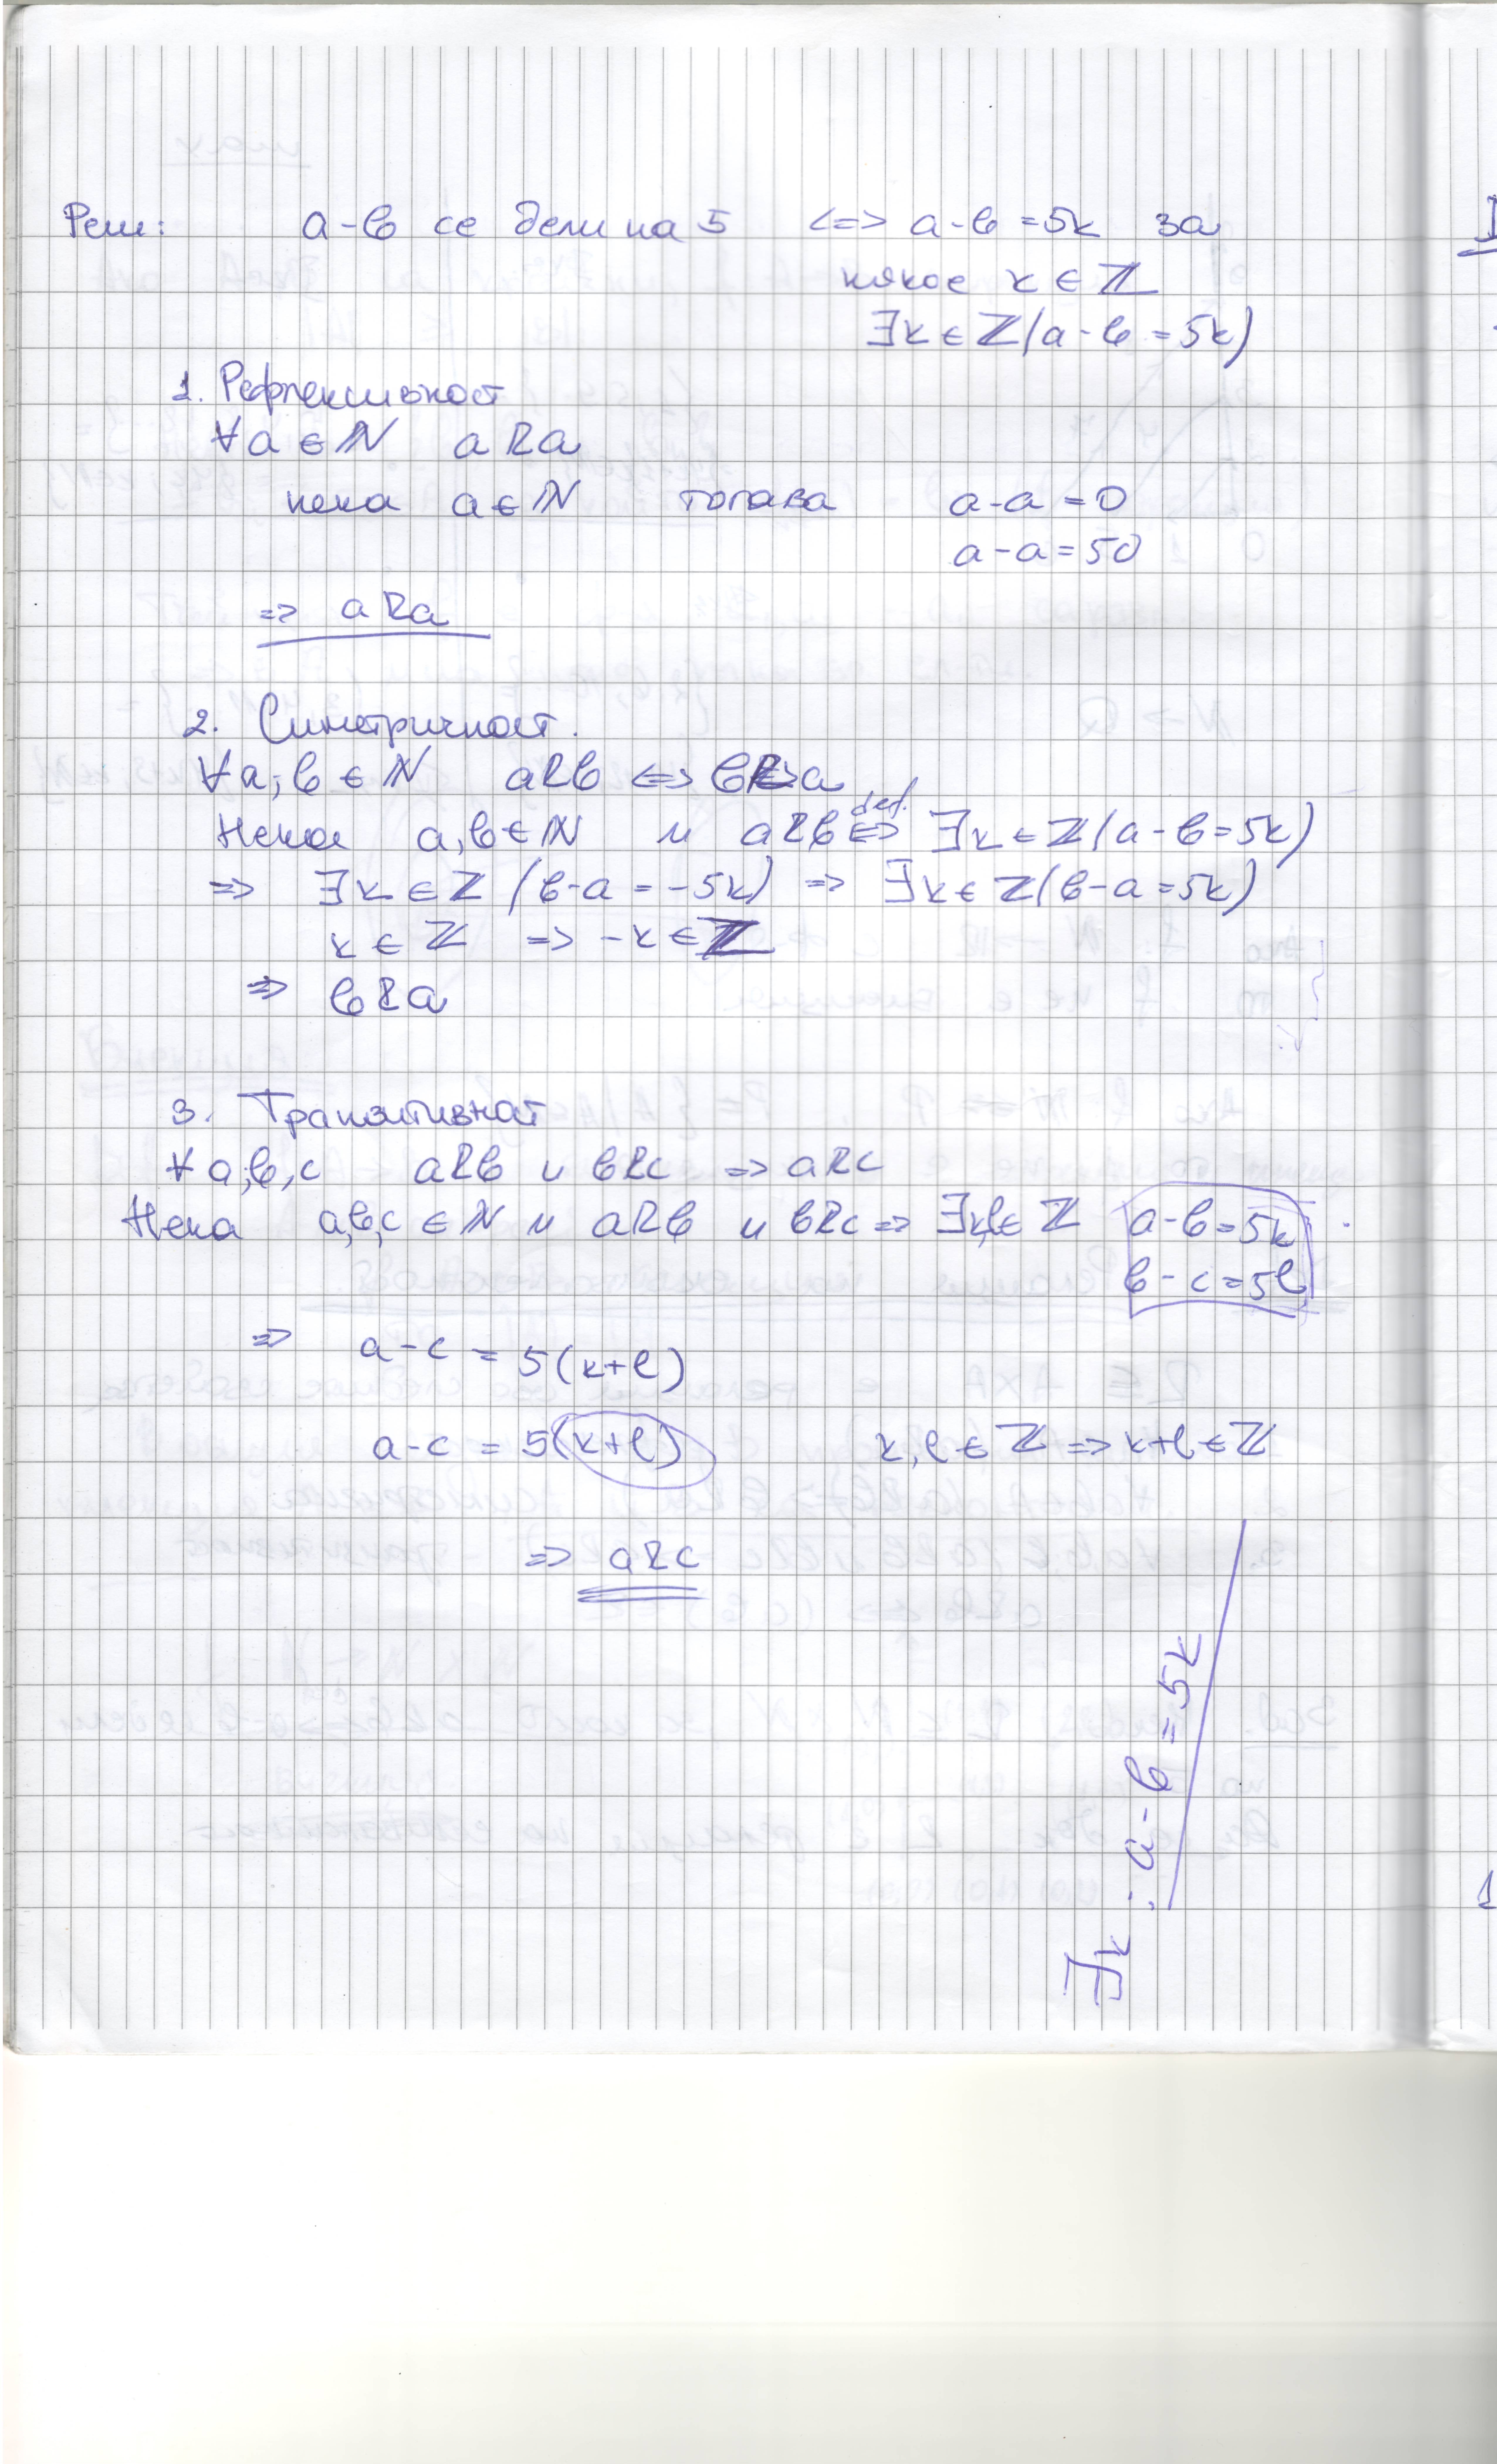 Реш: a-b се дели на 5 <=> a-b = 5k за
някое k ∈ ℤ
∃k ∈ ℤ(a-b = 5k)
1. Рефлексивност
∀a ∈ ℕ aRa
нека a ∈ ℕ тогава a-a = 0
a-a = 50
=> aRa
2. Симетричност.
∀a,b ∈ ℕ aRb <=> bRa
Нека a,b ∈ ℕ и aRb <=> def. ∃k ∈ ℤ(a-b = 5k)
=> ∃k ∈ ℤ (b-a = -5k) => ∃k ∈ ℤ(b-a = 5k)
k ∈ ℤ => -k ∈ ℤ
=> bRa
3. Транзитивност
∀a,b,c aRb и bRc => aRc
Нека a,b,c ∈ ℕ и aRb и bRc => ∃k,l ∈ ℤ a-b = 5k
b-c = 5l
=> a-c = 5(k+l)
a-c = 5(k+l) k,l ∈ ℤ => k+l ∈ ℤ
=> aRc
∃k : a-b = 5k